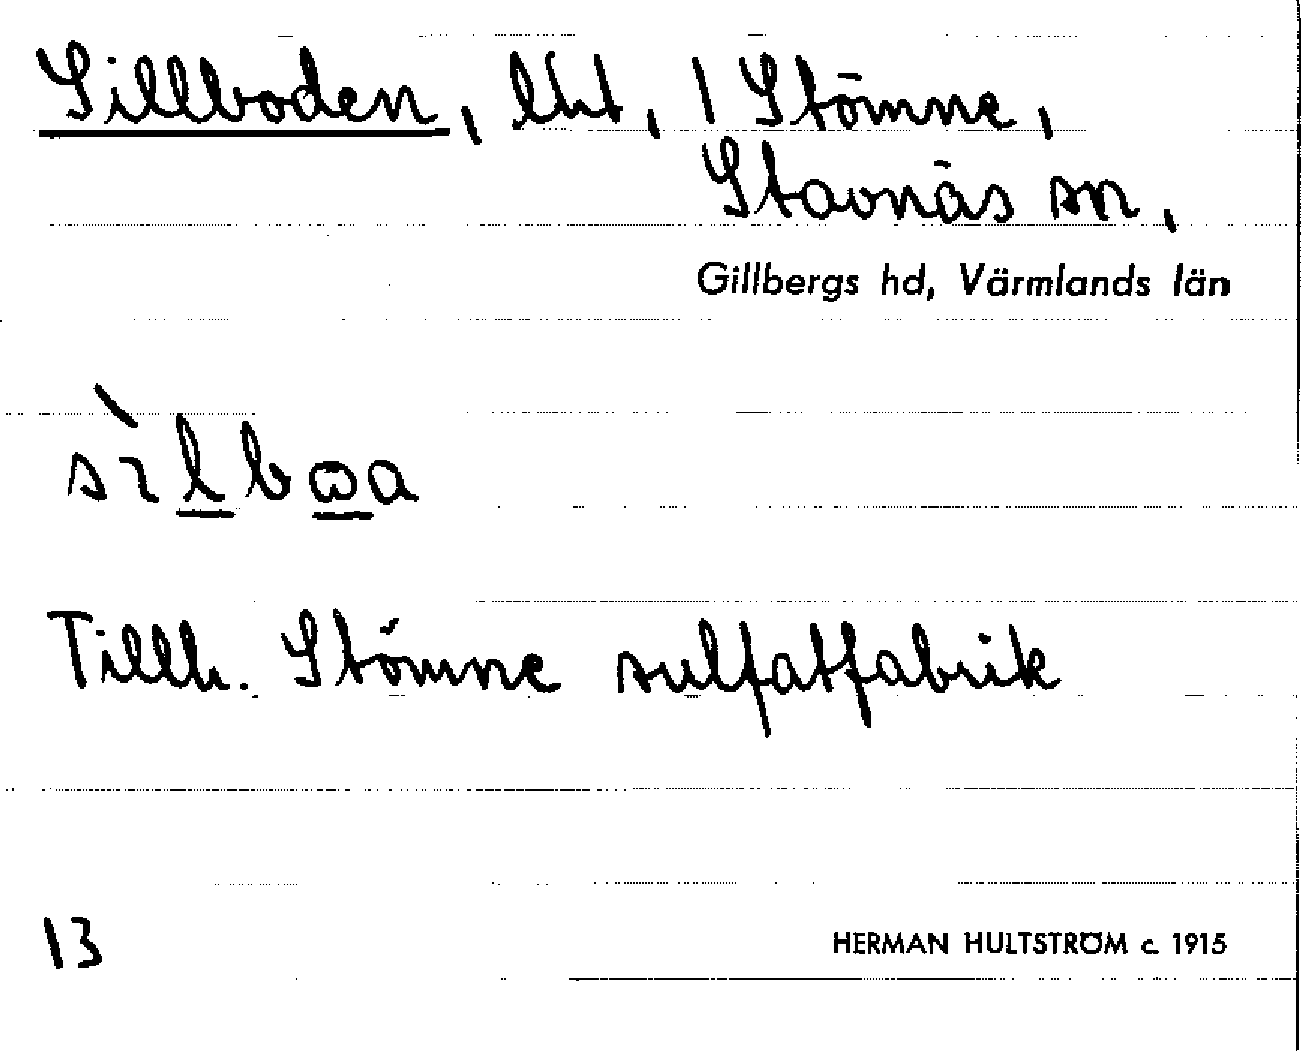 Sillboden, lht, 1 Stömne,
Stavnäs sn,
Gillbergs hd, Värmlands län
sı̀lbωa
Tillh. Stömne sulfatfabrik
13
HERMAN HULTSTRÖM c. 1915